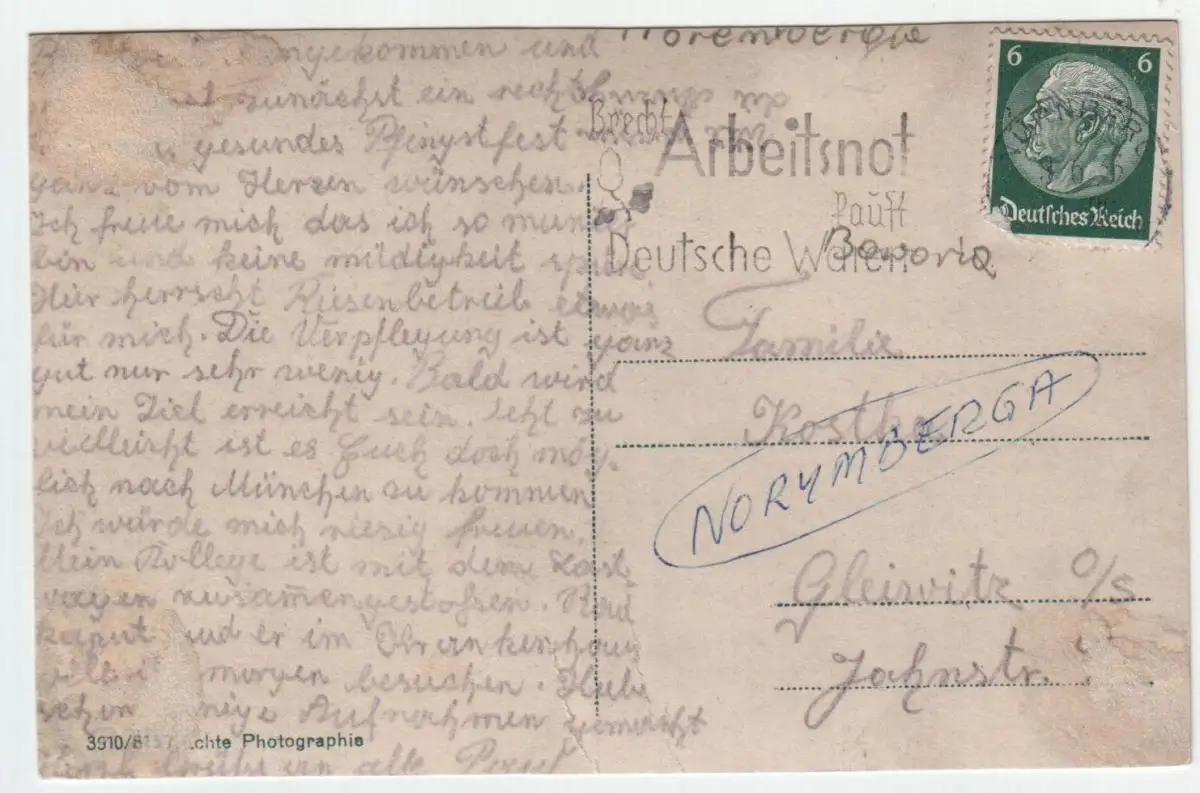 angekommen und
zunächst ein recht
gesundes Pfingstfest
ganz vom Herzen wünschen.
Ich freue mich das ich so munter
bin und keine müdigkeit spüre
Hier herrscht Riesenbetrieb etwas
für mich. Die Verpflegung ist ganz
gut nur sehr wenig. Bald wird
mein Ziel erreicht sein. zu
vielleicht ist es Euch doch mög-
lich nach München zu kommen
Ich würde mich riesig freuen.
Mein Kollege ist mit dem Last
wagen zusam̄engestossen. Rad
kaput und er im Khrankenhaus
morgen besuchen. Habe
schon einige Aufnahmen gemacht
Grüße an alle Paul
3910/ chte Photographie
Norembergue
Brecht
Arbeitsnot
kauft
Deutsche Waren
Bavoria
6 6
Deutsches Reich
Familie
NORYMBERGA
Gleiwitz O/S
Jahnstr.